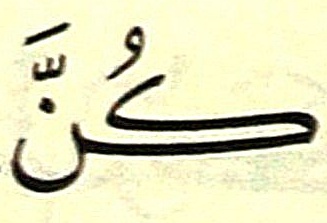 كُنَّ